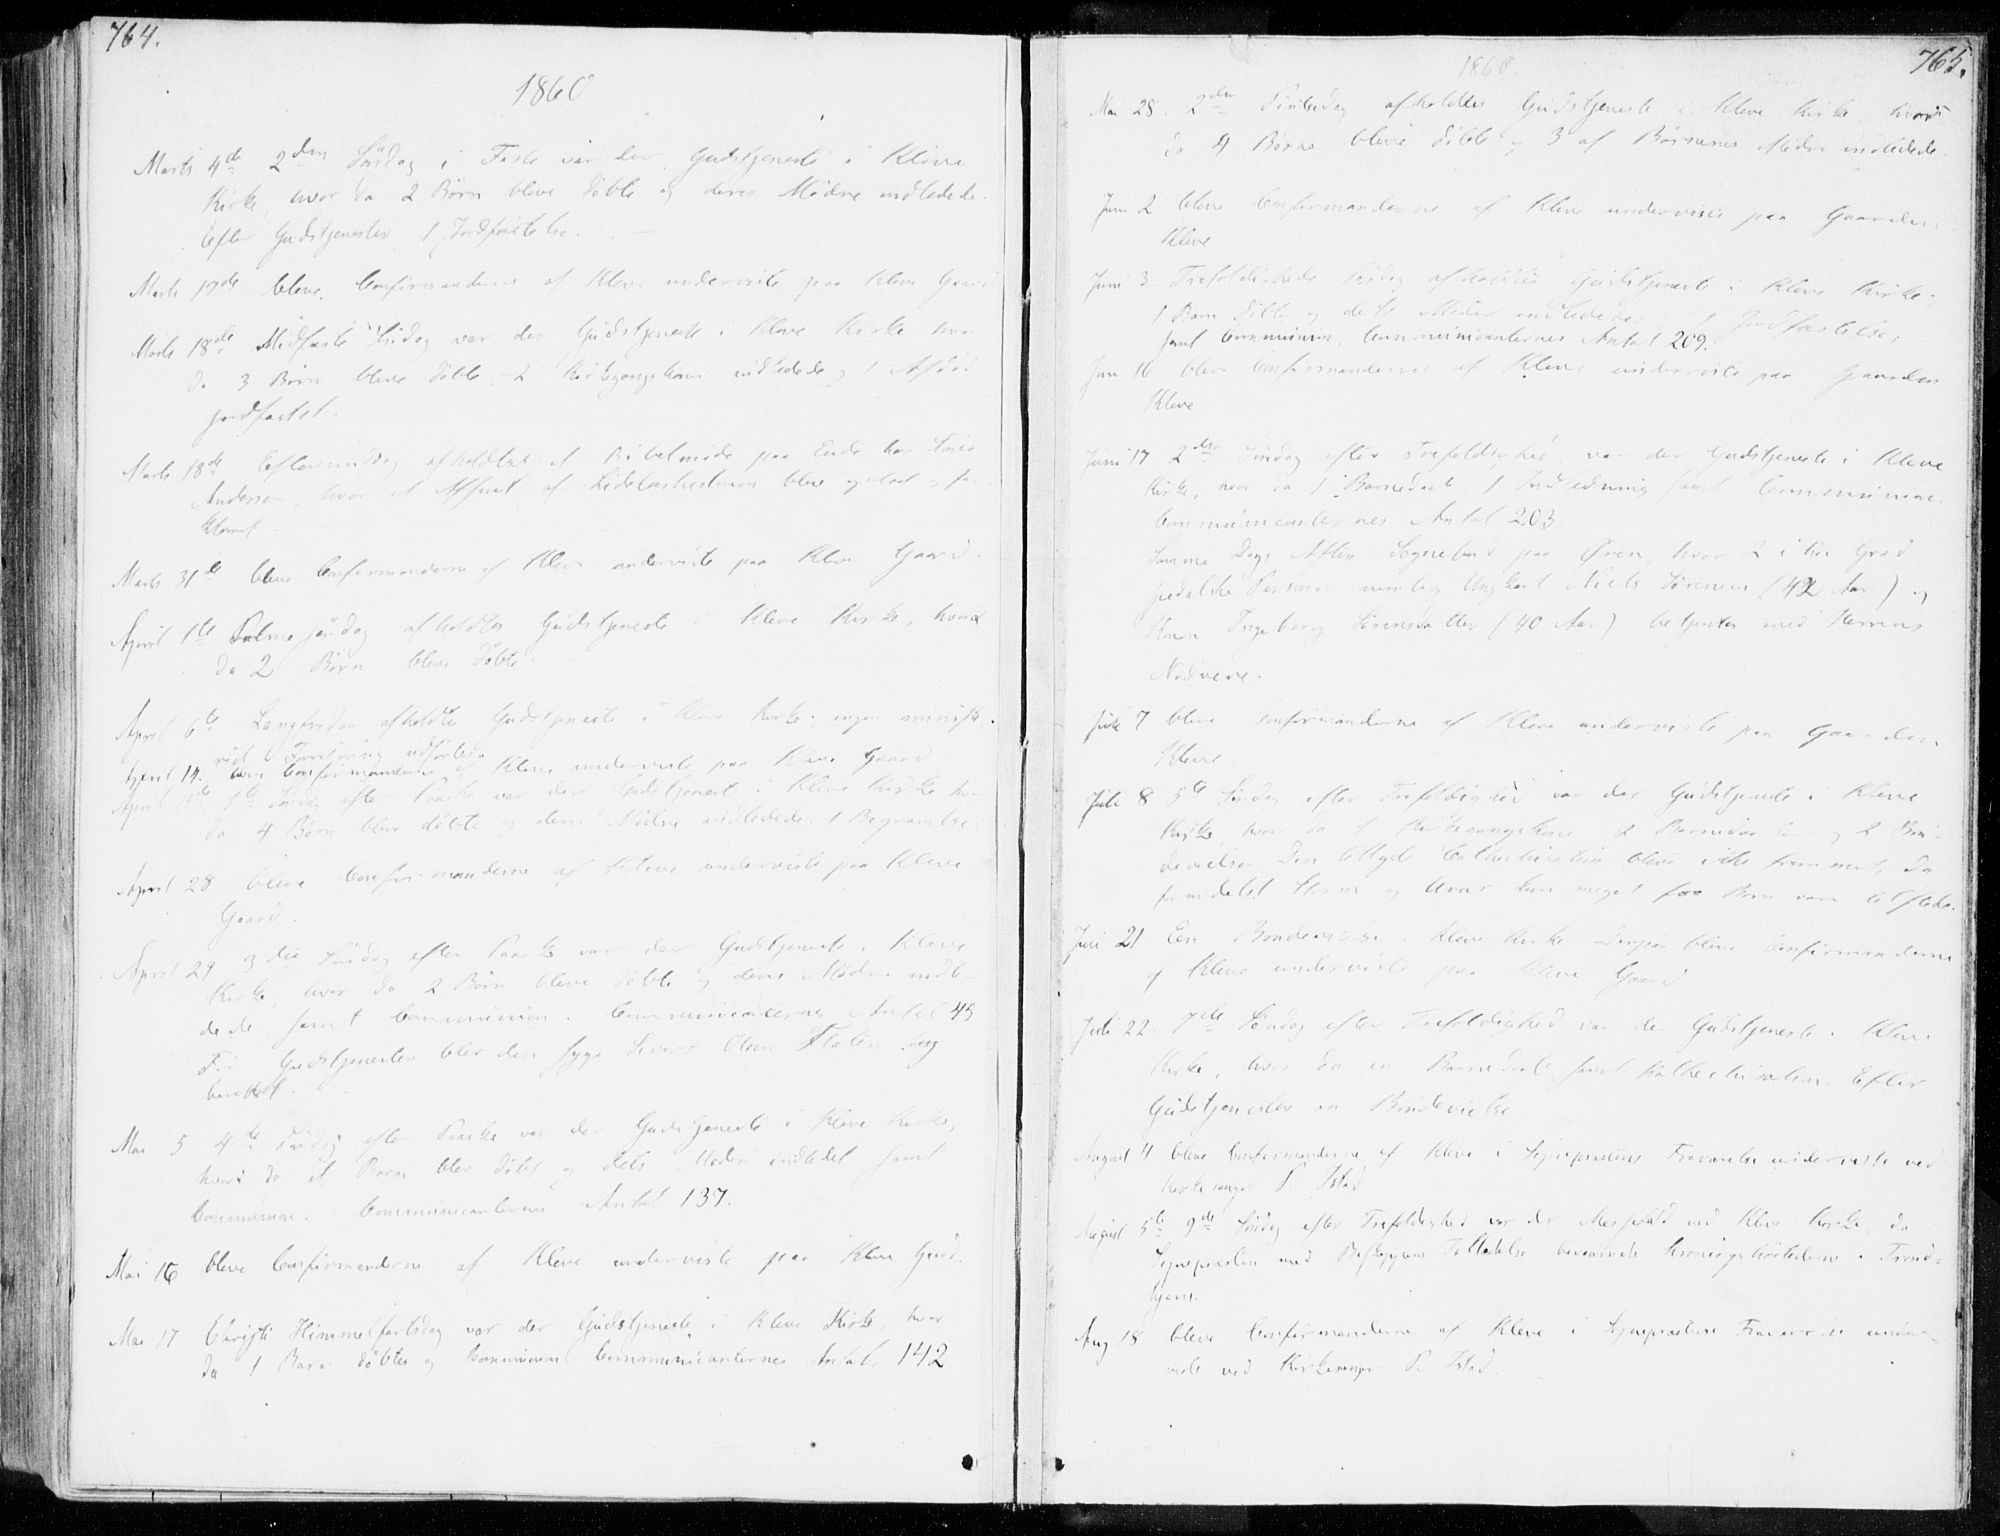 764.
1860
Marts 4de 2den Søndag i Faste var der Gudstjeneste i Kleve
Kirke, hvor da 2 Børn bleve døbte og deres Mødre indledede.
Efter Gudstjenesten 1 Jordfæstelse.
Marts 17de bleve Confirmanderne af Kleve underviste paa Kleve Gaard
Marts 18de Midfaste Søndag var der Gudstjeneste i Kleve Kirke hvor
da 3 Børn bleve døbte, 2 Kirkegangskoner indledede og 1 Afdød
jordfæstet.
Marts 18de Eftermiddag afholdtes et Bibelmøde paa Eide hos
Andersen, hvor et Afsnit af Lidelseshistorien blev oplæst og for-
klaret.
Marts 31te bleve Confirmanderne af Kleve underviste paa Kleve Gaard.
April 1te Palmesøndag afholdtes Gudstjeneste i Kleve Kirke, hvor
da 2 Børn bleve døbte.
April 6te Langfredag afholdtes Gudstjeneste i Kleve Kirke; ingen minist.
Forretning udførtes.
April 14. bleve Confirmanderne af Kleve underviste paa Kleve Gaard
April 15de 1te Søndag efter Paaske var der Gudstjeneste i Kleve Kirke hvor
da 4 Børn bleve døbte og deres Mødre indledede. 1 Begravelse.
April 28 bleve Confirmanderne af Kleve underviste paa Kleve
Gaard.
April 29 3die Søndag efter Paaske var der Gudstjeneste i Kleve
Kirke, hvor da 2 Børn bleve døbte og deres Mødre indle-
dede samt Communion. Communicanternes Antal 45
Før Gudstjenesten blev den syge Sivert Olsen Flaten
berettet.
Mai 5 4de Søndag efter Paaske var der Gudstjeneste i Kleve Kirke,
hvor da et Barn blev døbt og dets Moder indledet samt
Communion. Communicanternes Antal 137.
Mai 16 bleve Confirmanderne af Kleve underviste paa Kleve Gaard.
Mai 17 Christi Himmelfartsdag var der Gudstjeneste i Kleve Kirke, hvor
da 1 Barn døbtes og Communion Communicanternes Antal 142
765.
1860.
Mai 28. 2den Pintsedag afholdtes Gudstjeneste i Kleve Kirke, hvor
da 4 Børn bleve døbte og 3 af Børnenes Mødre indledede.
Juni 2 bleve Confirmanderne af Kleve underviste paa Gaarden
Kleve
Juni 3 Trefoldigheds Søndag afholdtes Gudstjeneste i Kleve Kirke;
1 Barn døbt og dets Moder indledet Jordfæstelse,
samt Communion, Communicanternes Antal 209.
Juni 16 bleve Confirmanderne af Kleve underviste paa Gaarden
Kleve
Juni 17 2den Søndag efter Trefoldighed var der Gudstjeneste i Kleve
Kirke, hvor da 1 Barnedaab, 1 Indledning samt Communion.
Communicanternes Antal 203.
Samme Dags Aften Sognebud paa Øren, hvor 2 i høi Grad
spedalske Personer nemlig Ungkarl Niels Sørensen (42 Aar) og
Ingeborg Sørensdatter (40 Aar) betjentes med Herrens
Nadvere.
Juli 7 bleve Confirmanderne af Kleve underviste paa Gaarden
Kleve.
Juli 8 5te Søndag efter Trefoldighed var der Gudstjeneste i Kleve
Kirke, hvor da 1 Kirkegangskone 2 Barnedaab og 2 Bru-
devielser. Den tillyste Catechisation blev ikke fremmet, da
formedelst Storm og Uveir kun meget faa Børn vare tilstede.
Juli 21 En Brudevielse i Kleve Kirke Derpaa bleve Confirmanderne
af Kleve underviste paa Kleve Gaard
Juli 22. 7de Søndag efter Trefoldighed var der Gudstjeneste i Kleve
Kirke, hvor da en Barnedaab samt Kathechisation. Efter
Gudstjenesten en Brudevielse
August 4 bleve Confirmanderne af Kleve i Sognepræstens Fraværelse underviste ved
Kirkesanger P. Istad
August 5te 9de Søndag efter Trefoldighed var der Messefald ved Kleve Kirke, da
Sognepræsten med Biskoppens Tilladelse bivaanede Kroningshøitiden i Trond-
hjem.
Aug 18 bleve Confirmanderne af Kleve i Sognepræstens Fraværelse under-
viste ved Kirkesanger P. Istad.